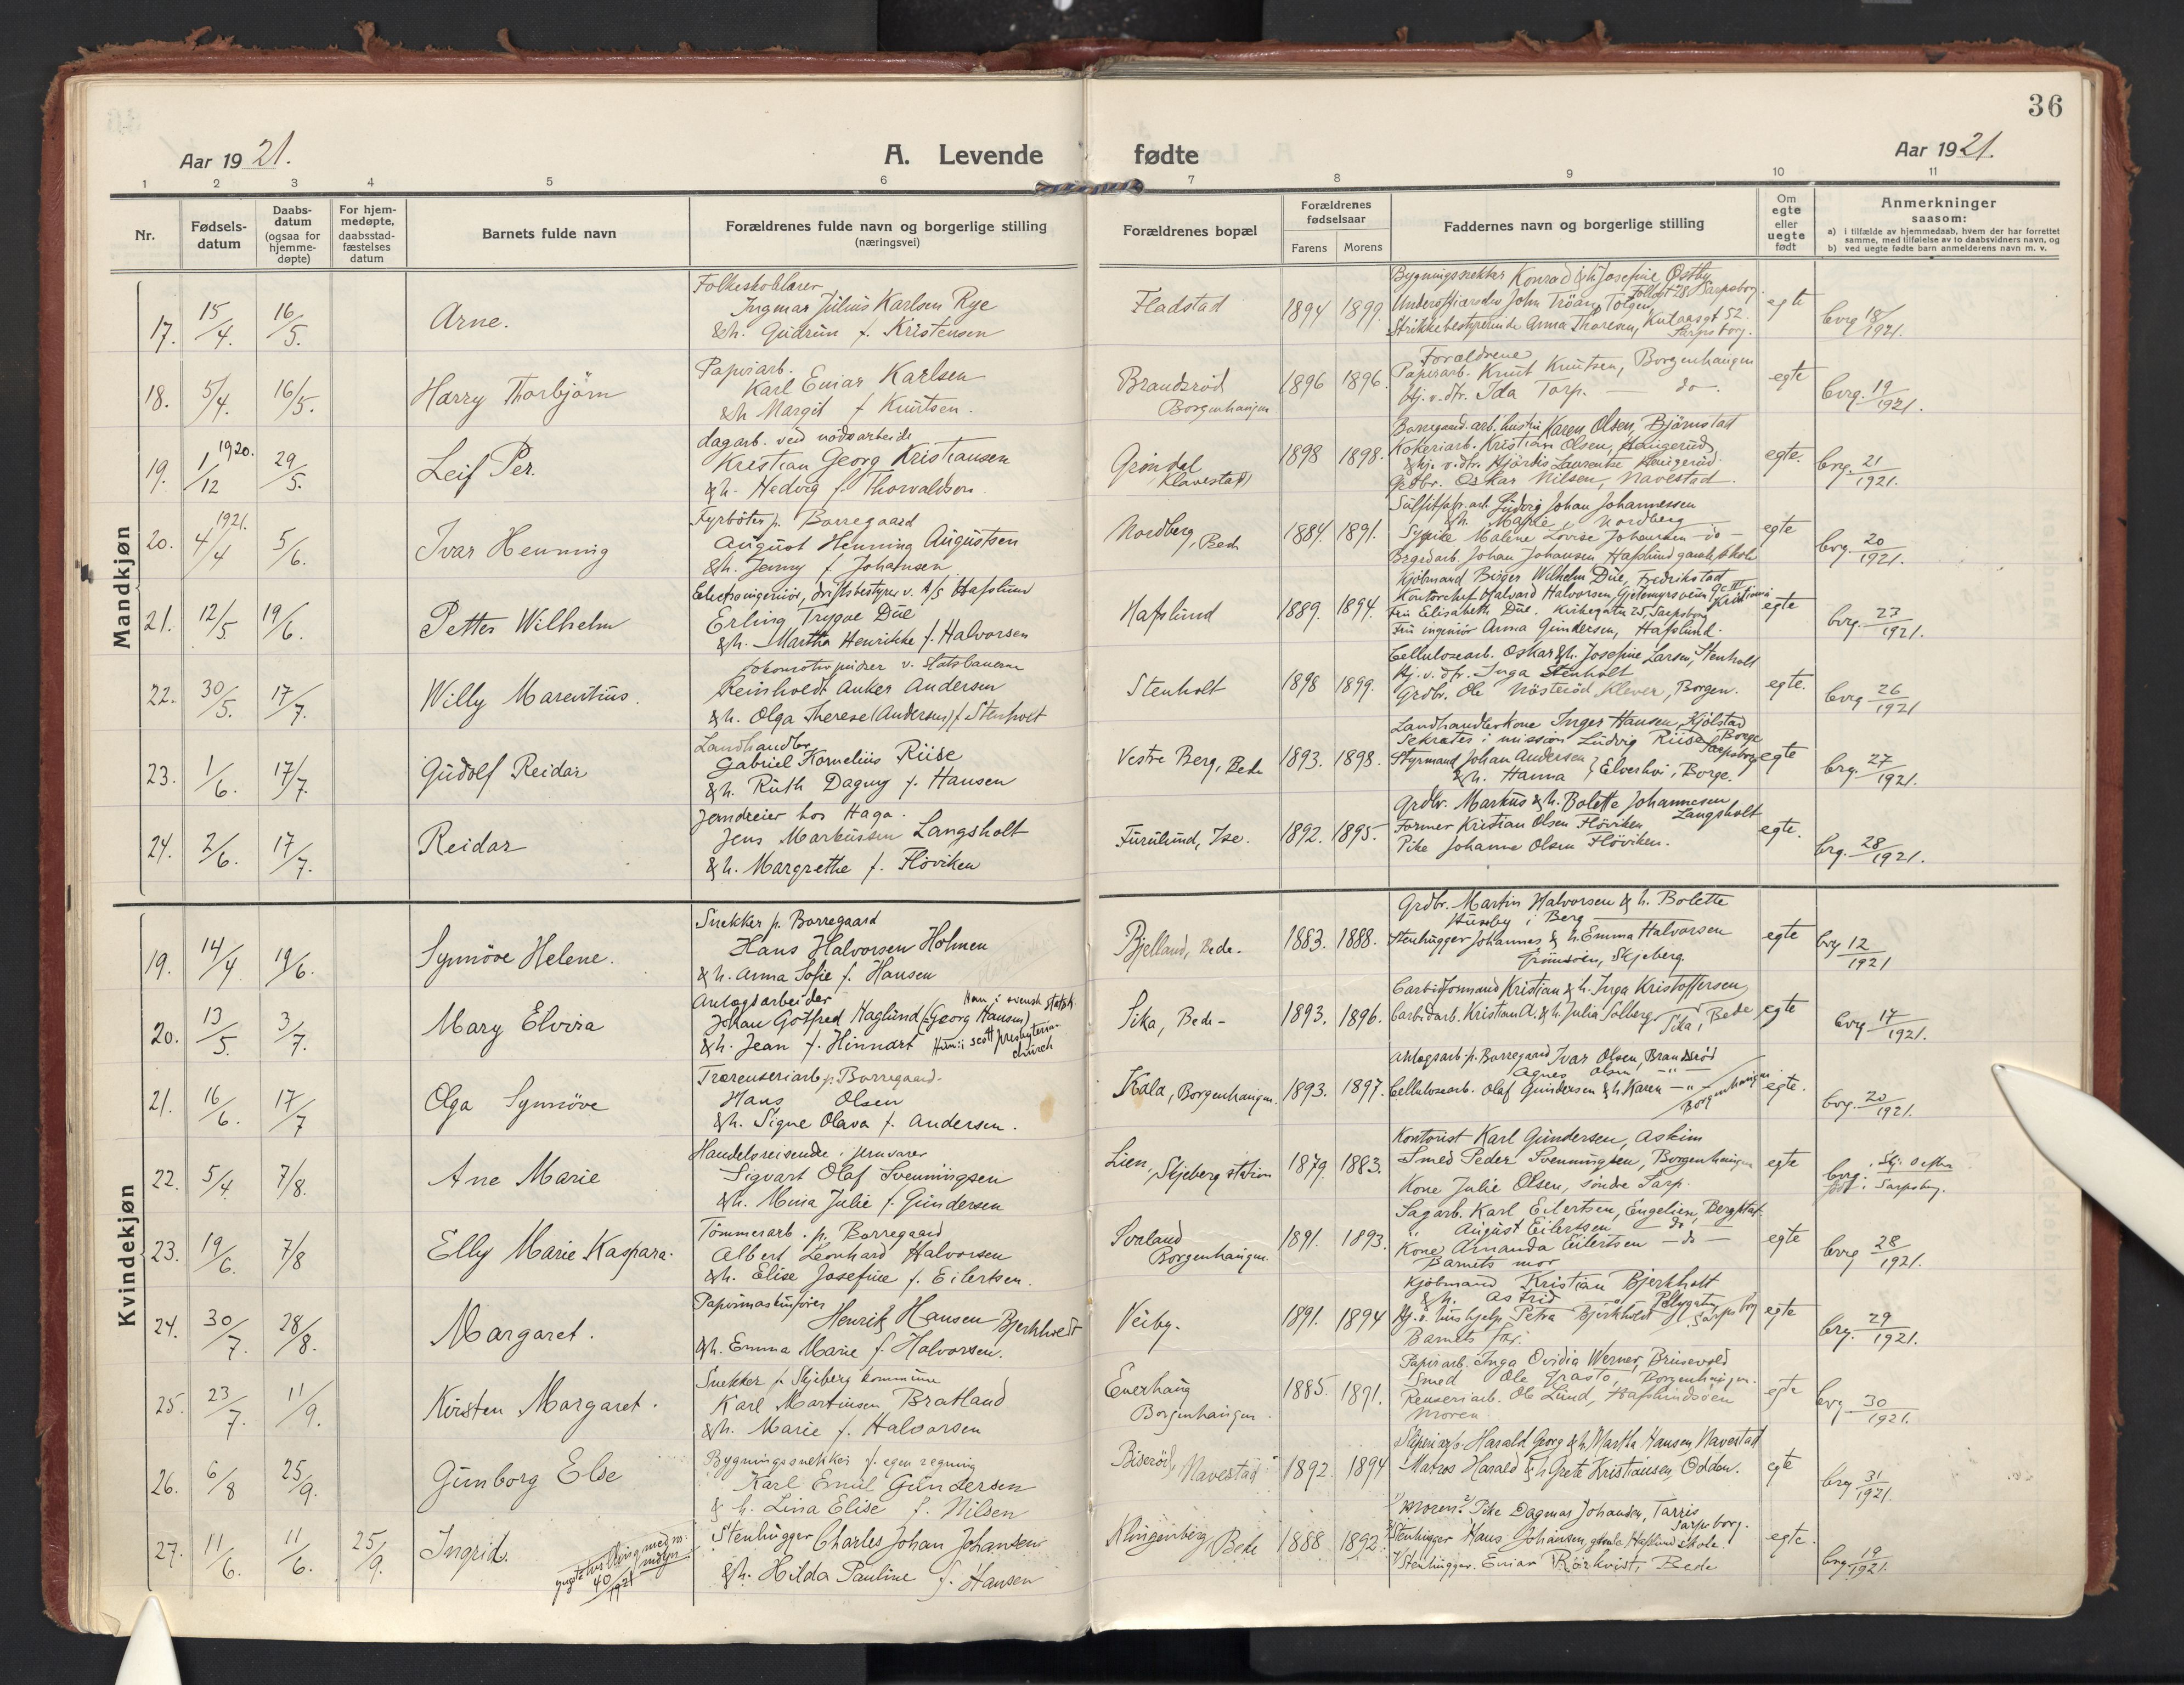 36
Aar 1921.
A. Levende fødte
Aar 1921.
1 2 3 4 5 6 7 8 9 10 11
Nr.
Fødsels-
datum
Daabs-
datum
(ogsaa for
hjemme-
døpte)
For hjem-
medøpte,
daabsstad-
fæstelses
datum
Barnets fulde navn
Forældrenes fulde navn og borgerlige stilling
(næringsvei)
Forældrenes bopæl
Forældrenes
fødselsaar
Farens Morens
Faddernes navn og borgerlige stilling
Om
egte
eller
uegte
født
Anmerkninger
saasom:
a) i tilfælde av hjemmedaab, hvem der har forrettet
samme, med tilføielse av to daabsvidners navn, og
b) ved uegte fødte barn anmelderens navn m. v.
Mandkjøn
17. 15/4. 16/5. Arne.
Folkeskolelærer
Ingmar Julius Karlsen Rye
& h. Gudrun f. Kristensen
Fladstad 1894 1899.
Bygningssnekker Konrad & h. Josefine Østby
Sarpsborg.
Underofficerselev John Trøan, Tolgen
Strikkebestyrerinde Anna Thoresen,
Sarpsborg.
egte
bvrg 18/1921.
18. 5/4. 16/5. Harry Thorbjørn
Papirarb.
Karl Einar Karlsen
& h. Margit f. Knutsen.
Brandsrød
Borgenhaugen
1896 1896.
Forældrene
Papirarb. Knut Knutsen, Borgenhaugen
Hj. v. dtr. Ida Torp. — do —.
egte
bvrg. 19/1921.
19. 1920. 1/12 29/5. Leif Per.
dagarb. ved nødsarbeide
Kristian Georg Kristiansen
& h. Hedvig f. Thorvaldsen.
Grøndal
Klavestad
1898 1898.
Borregaard. arb. hustru Karen Olsen, Bjørnstad
Kokeriarb. Kristian Olsen, Haugerud
& hj. v. dtr. Hjørdis Laurentse Haugerud.
Grdbr. Oskar Nilsen, Navestad.
egte.
bvrg. 21/1921.
20. 1921. 4/4 5/6. Ivar Henning
Fyrbøter p. Borregaard
August Henning Augustsen
& h. Jenny f. Johansen
Nordberg, Bede
1884. 1891.
Sulfitfabr. arb. Ludvig Johan Johannessen
& h. Marie, Nordberg
Sypike Malene Lovise Johansen — do —
Johan Johansen Hafslund gamle skole
egte
bvrg. 20/1921.
21. 12/5 19/6. Petter Wilhelm
Elektroingeniør, driftsbestyrer v. A/S Hafslund
Erling Trygve Düe
& h. Martha Henrikke f. Halvorsen
Hafslund 1889. 1894.
Kjøbmand Birger Wilhelm Düe, Fredrikstad
Kontorchef Halvard Halvorsen, Gjetemyrsveien
Kristiania
Frk Elisabeth Düe. Kirkegaten 25, Sarpsborg
Fru ingeniør Anna Gundersen, Hafslund.
egte
bvrg. 23/1921.
22. 30/5. 17/7. Willy Marentius.
Lokomotivpudser v. Statsbanerne
Reinholdt Anker Andersen
& h. Olga Therese (Andersen) f. Stenholt
Stenholt 1898 1899.
Cellulosearb. Oskar & h. Josefine Larsen, Stenholt
Hj. v. dtr. Inga Stenholt
Grdbr. Ole Nøsterød Klever, Borgen.
egte.
bvrg 26/1921
23. 1/6. 17/7. Gudolf Reidar
Landhandler
Gabriel Kornelius Riise
& h. Ruth Dagny f. Hansen
Vestre Berg, Bede 1893. 1898.
Landhandlerkone Inger Hansen, Kjølstad
Borge
Sekretær i mission Ludvig Riise
Sarpsborg
Styrmand Johan Andersen
& h. Hanna } Elverhøi, Borge.
egte
bvrg. 27/1921.
24. 2/6. 17/7. Reidar
Jerndreier hos Haga.
Jens Markussen Langsholt
& h. Margrethe f. Fløviken
Furulund, Ise. 1892. 1895.
Grdbr. Markus & h. Bolette Johannesen
Langsholt
Former Kristian Olsen Fløviken
Pike Johanne Olsen Fløviken.
egte.
bvrg. 28/1921.
Kvindekjøn
19. 14/4 19/6. Synnöve Helene.
Snekker p. Borregaard
Hans Halvorsen Holmen
& h. Anna Sofie f. Hansen
Bjelland, Bede. 1883. 1888.
Grdbr. Martin Halvorsen & h. Bolette
Huseby i Berg
Stenhugger Johannes & h. Emma Halvorsen
Grimsøen, Skjeberg
egte
bvrg 12/1921
20. 13/5. 3/7. Mary Elvira
Anlagsarbeider Han i svensk statsk.
Johan Gotfred Haglund (Georg Hansen)
& h. Jean f. Hinnart Hun: i scott presbyterian
church
Sika, Bede - 1893. 1896.
Carbidformand Kristian & h. Inga Kristoffersen,
Carbidarb. Kristian A. & h. Julia Solberg
Sika, Bede
egte
bvrg 17/1921.
21. 16/6. 17/7 Olga Synnöve
Trærenseriarb. p. Borregaard.
Hans Olsen
& h. Signe Olava f. Andersen.
Kala, Borgenhaugen. 1893. 1897.
Anlagsarb. p. Borregaard Ivar Olsen, Brandsrød
Agnes Olsen — " —
Cellulosearb. Olaf Gundersen & h. Karen — " —
Borgenhaugen
egte.
bvrg. 20/1921.
22. 5/4. 7/8. Ane Marie
Handelsreisende i Jernvarer
Sigvart Olaf Svenningsen
& h. Musa Julie f. Gundersen
Lien, Skjeberg station 1879. 1883.
Kontorist Karl Gundersen, Askim
Smed Peder Svenningsen, Borgenhaugen
Kone Julie Olsen, søndre Sarp.
egte
bvrg.
født i Sarpsborg.
23. 19/6. 7/8 Elly Marie Kaspara.
Tømmerarb. p. Borregaard
Albert Leonhard Halvorsen
& h. Elise Josefine f. Eilertsen.
Sorland
Borgenhaugen.
1891. 1893.
Sagarb. Karl Eilertsen, Engelien,
" August Eilertsen — do —
Kone Amanda Eilertsen — do —
Barnets mor
egte
bvrg 28/1921.
24. 30/7. 28/8. Margaret.
Papirmaskinfører
Henrik Hansen Bjerkholdt
& h. Emma Marie f. Halvorsen.
Veiby. 1891. 1894
Kjøbmand Kristian Bjerkholt
& h. Astrid
Petra Bjerkholdt Sarpsborg
Barnets far.
egte
bvrg. 29/1921.
25. 23/7. 11/9. Kirsten Margaret.
Snekker p. Skjeberg kommune
Karl Martinsen Bratland
& h. Marie f. Halvorsen
Enerhaug
Borgenhaugen.
1885. 1891.
Papirarb. Inga Ovidia Werner, Brusevold
Smed Ole Grasto, Borgenhaugen.
Renseriarb. Ole Lund, Hafslundsøen
Moren.
egte
bvrg 30/1921.
26. 6/8 25/9. Gunborg Else
Bygningssnekker f. egen regning
Karl Emil Gundersen
& h. Lina Elise f. Nilsen
Biserød, Navestad 1892. 1894
Sliperiarb. Harald Georg & h. Martha Hansen, Navestad
Matros Harald & h. Grete Kristiansen, Odden.
egte
bvrg 31/1921.
27. 11/6. 11/6. 25/9. Ingrid.
40/1921
Stenhugger Charles Johan Johansen
& h. Hilda Pauline f. Hansen
Klingenberg Bede 1888 1892.
1) Moren. 2) Pike Dagmar Johansen, Tarris
Sarpsborg.
3) Stenhugger Hans Johansen, gamle Hafslund skole.
4) Stenhugger Einar Rörkvist, Bede
egte.
bvrg 19/1921.